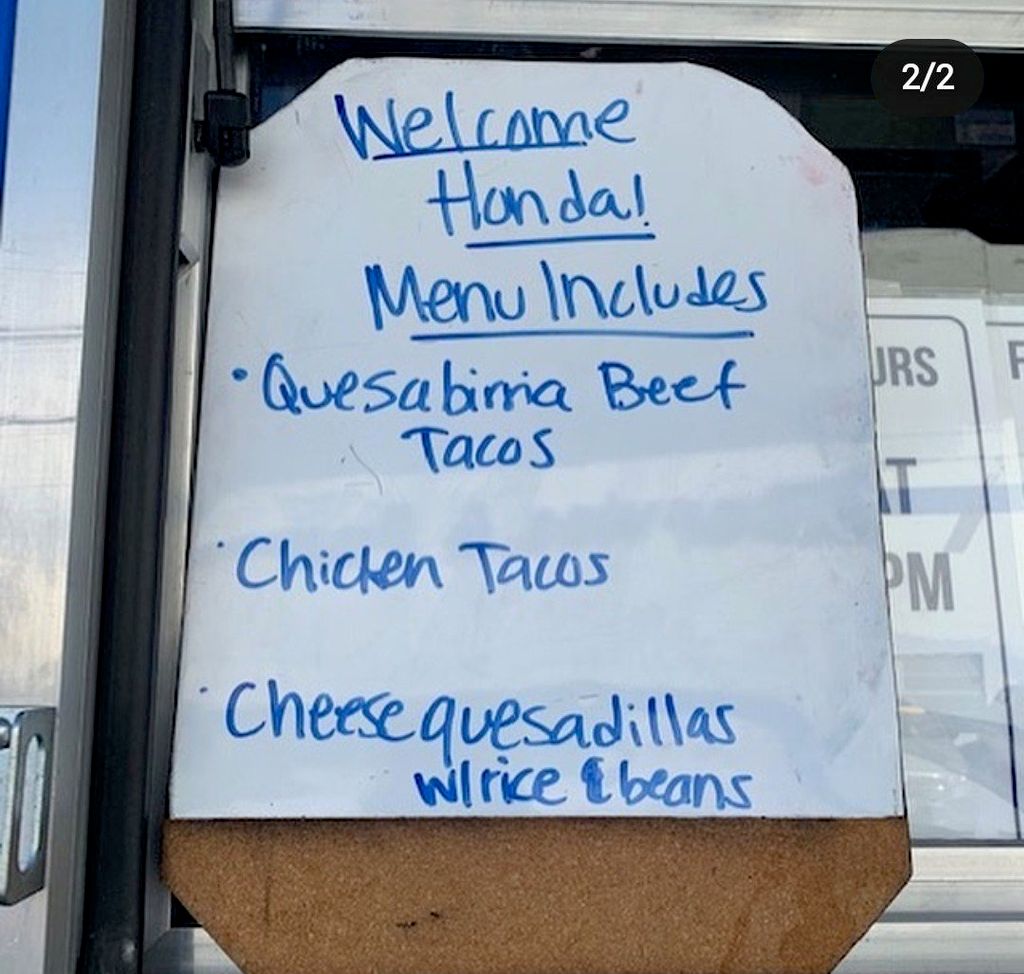 2/2
Welcome
Honda!
Menu Includes
• Quesabirria Beef
Tacos
• Chicken Tacos
• Cheese quesadillas
w/ rice & beans
URS
AT
PM
F